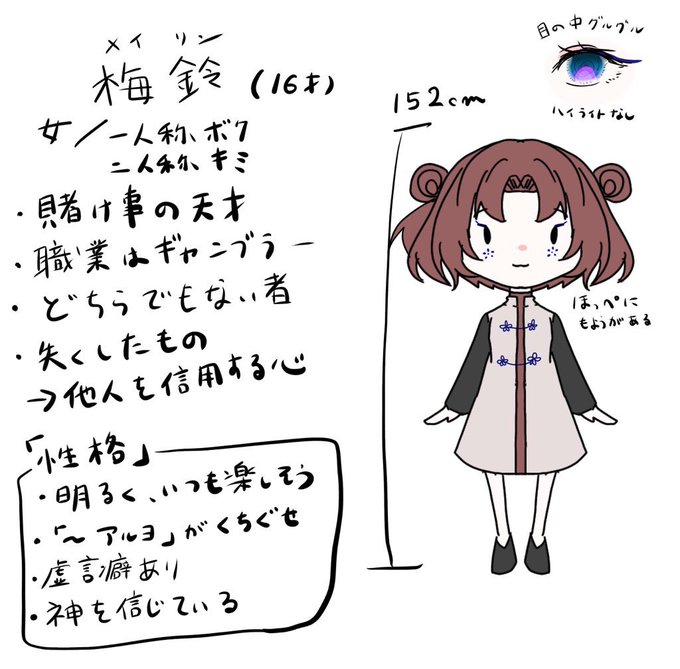 メイリン
梅鈴 (16才)
女/一人称、ボク
二人称、キミ
・賭け事の天才
・職業はギャンブラー
・どちらでもない者
・失くしたもの
→他人を信用する心
「性格」
・明るく、いつも楽しそう
・「〜アルヨ」がくちぐせ
・虚言癖あり
・神を信じている
152cm
目の中グルグル
ハイライトなし
ほっぺに
もようがある